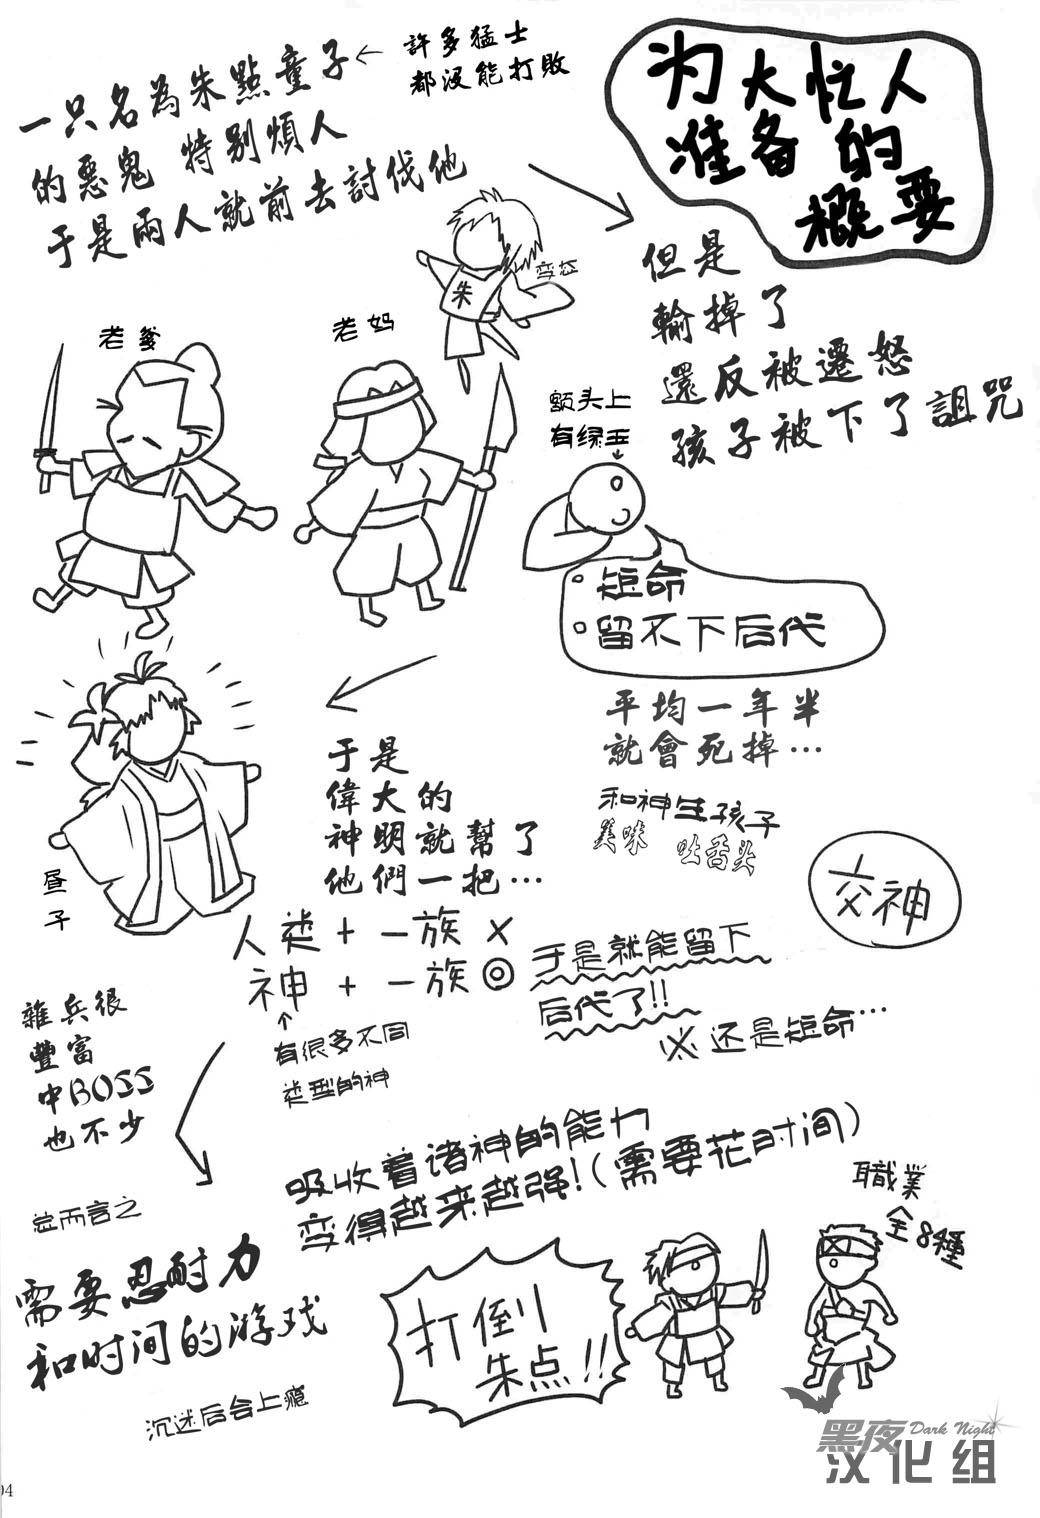 为大忙人
准备的
概要
許多猛士
都没能打敗
一只名為朱點童子
的惡鬼 特别煩人
于是兩人就前去討伐他
朱
变态
但是
輸掉了
還反被遷怒
孩子被下了詛咒
老爹
老妈
额头上
有绿玉
短命
留不下后代
平均一年半
就會死掉…
和神生孩子
美味 吐舌头
交神
于是
偉大的
神明就幫了
他們一把…
昼子
人类+一族×
神+一族◎
有很多不同
类型的神
于是就能留下
后代了!!
※还是短命…
雜兵很
豐富
中BOSS
也不少
吸收着诸神的能力
变得越来越强!(需要花时间)
職業
全8種
总而言之
需要忍耐力
和时间的游戏
沉迷后会上瘾
打倒
朱点!!
黑夜 Dark Night
汉化组
04